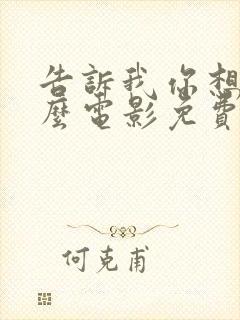 告訴我 你想
麼電影 免費
何克甫